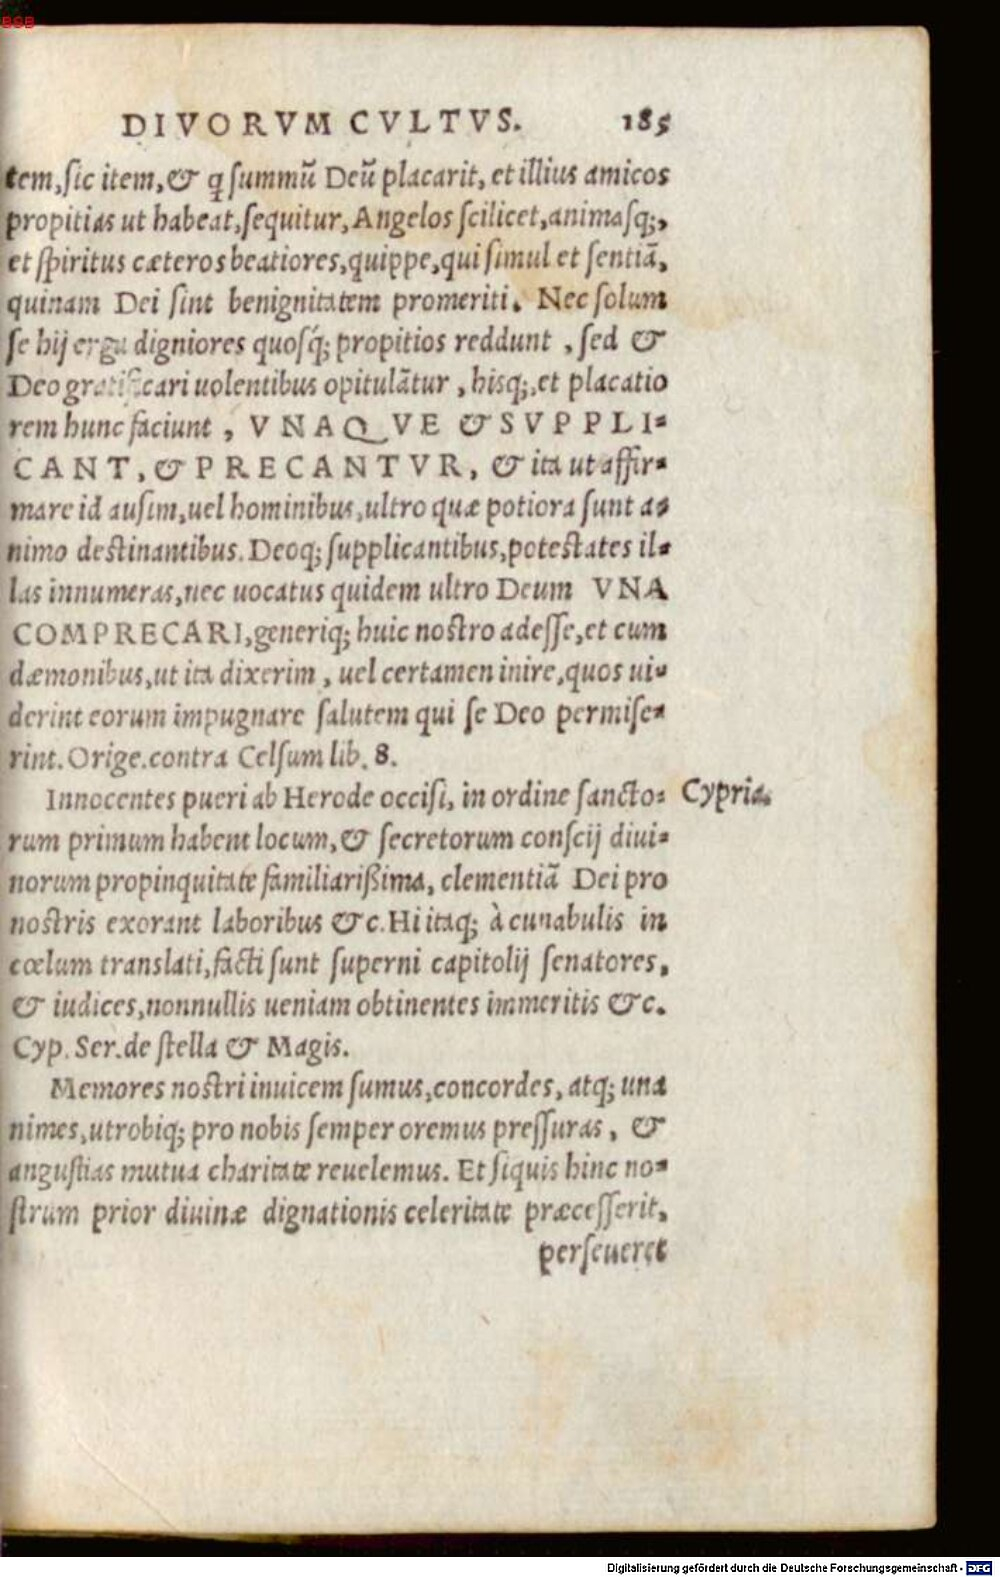 BSB
DIVORVM CVLTVS. 185
tem, sic item, & ꝗ summũ Deũ placarit, et illius amicos
propitias ut habeat, sequitur, Angelos scilicet, animasq;,
et spiritus cæteros beatiores, quippe, qui simul et sentiã,
quinam Dei sint benignitatem promeriti. Nec solum
se hij erga digniores quosq́; propitios reddunt, sed &
Deo gratificari uolentibus opitulãtur, hisq;, et placatio
rem hunc faciunt, VNAQVE & SVPPLI-
CANT, & PRECANTVR, & ita ut affir-
mare id ausim, uel hominibus, ultro quæ potiora sunt a-
nimo destinantibus. Deoq; supplicantibus, potestates il-
las innumeras, nec uocatus quidem ultro Deum VNA
COMPRECARI, generiq; huic nostro adesse, et cum
dæmonibus, ut ita dixerim, uel certamen inire, quos ui-
derint eorum impugnare salutem qui se Deo permise-
rint. Orige. contra Celsum lib. 8.
Innocentes pueri ab Herode occisi, in ordine sancto- Cypria.
rum primum habent locum, & secretorum conscij diui-
norum propinquitate familiarißima, clementiã Dei pro
nostris exorant laboribus &c. Hi itaq; à cunabulis in
cœlum translati, facti sunt superni capitolij senatores,
& iudices, nonnullis ueniam obtinentes immeritis &c.
Cyp. Ser. de stella & Magis.
Memores nostri inuicem sumus, concordes, atq; una
nimes, utrobiq; pro nobis semper oremus pressuras, &
angustias mutua charitate reuelemus. Et siquis hinc no-
strum prior diuinæ dignationis celeritate præcesserit,
perseueret
Digitalisierung gefördert durch die Deutsche Forschungsgemeinschaft - DFG